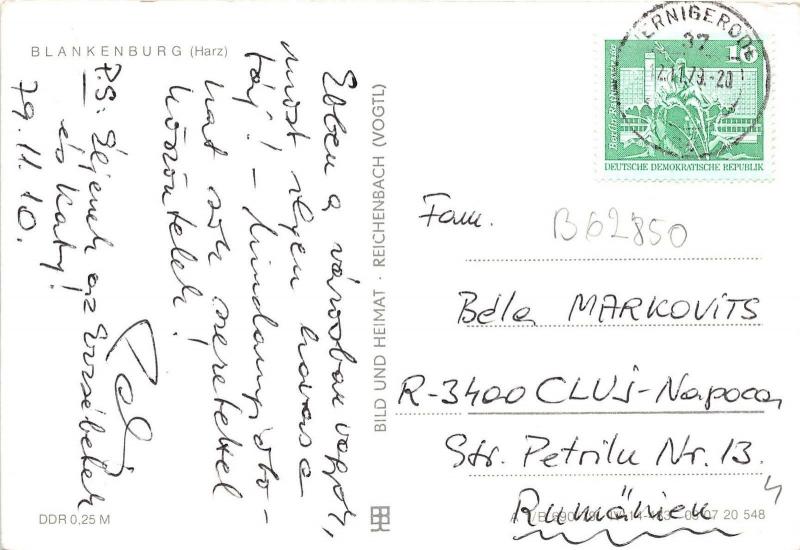 BLANKENBURG (Harz)
Ebben a városban vagyok,
most ilyen havas a
táj! – Mindannyiotokat
sok szeretettel
köszöntelek!
P.S: Éljenek az Erzsébetek
és Katy!
79.11.10.
DDR 0,25 M
BILD UND HEIMAT · REICHENBACH (VOGTL)
WERNIGERODE
37
12.11.79.-20
10
Berlin, Rathausstraße
DEUTSCHE DEMOKRATISCHE REPUBLIK
B62850
Fam.
Béla MARKOVITS
R-3400 CLUJ-Napoca,
Str. Petrilu Nr. 13.
Rumänien
07 20 548